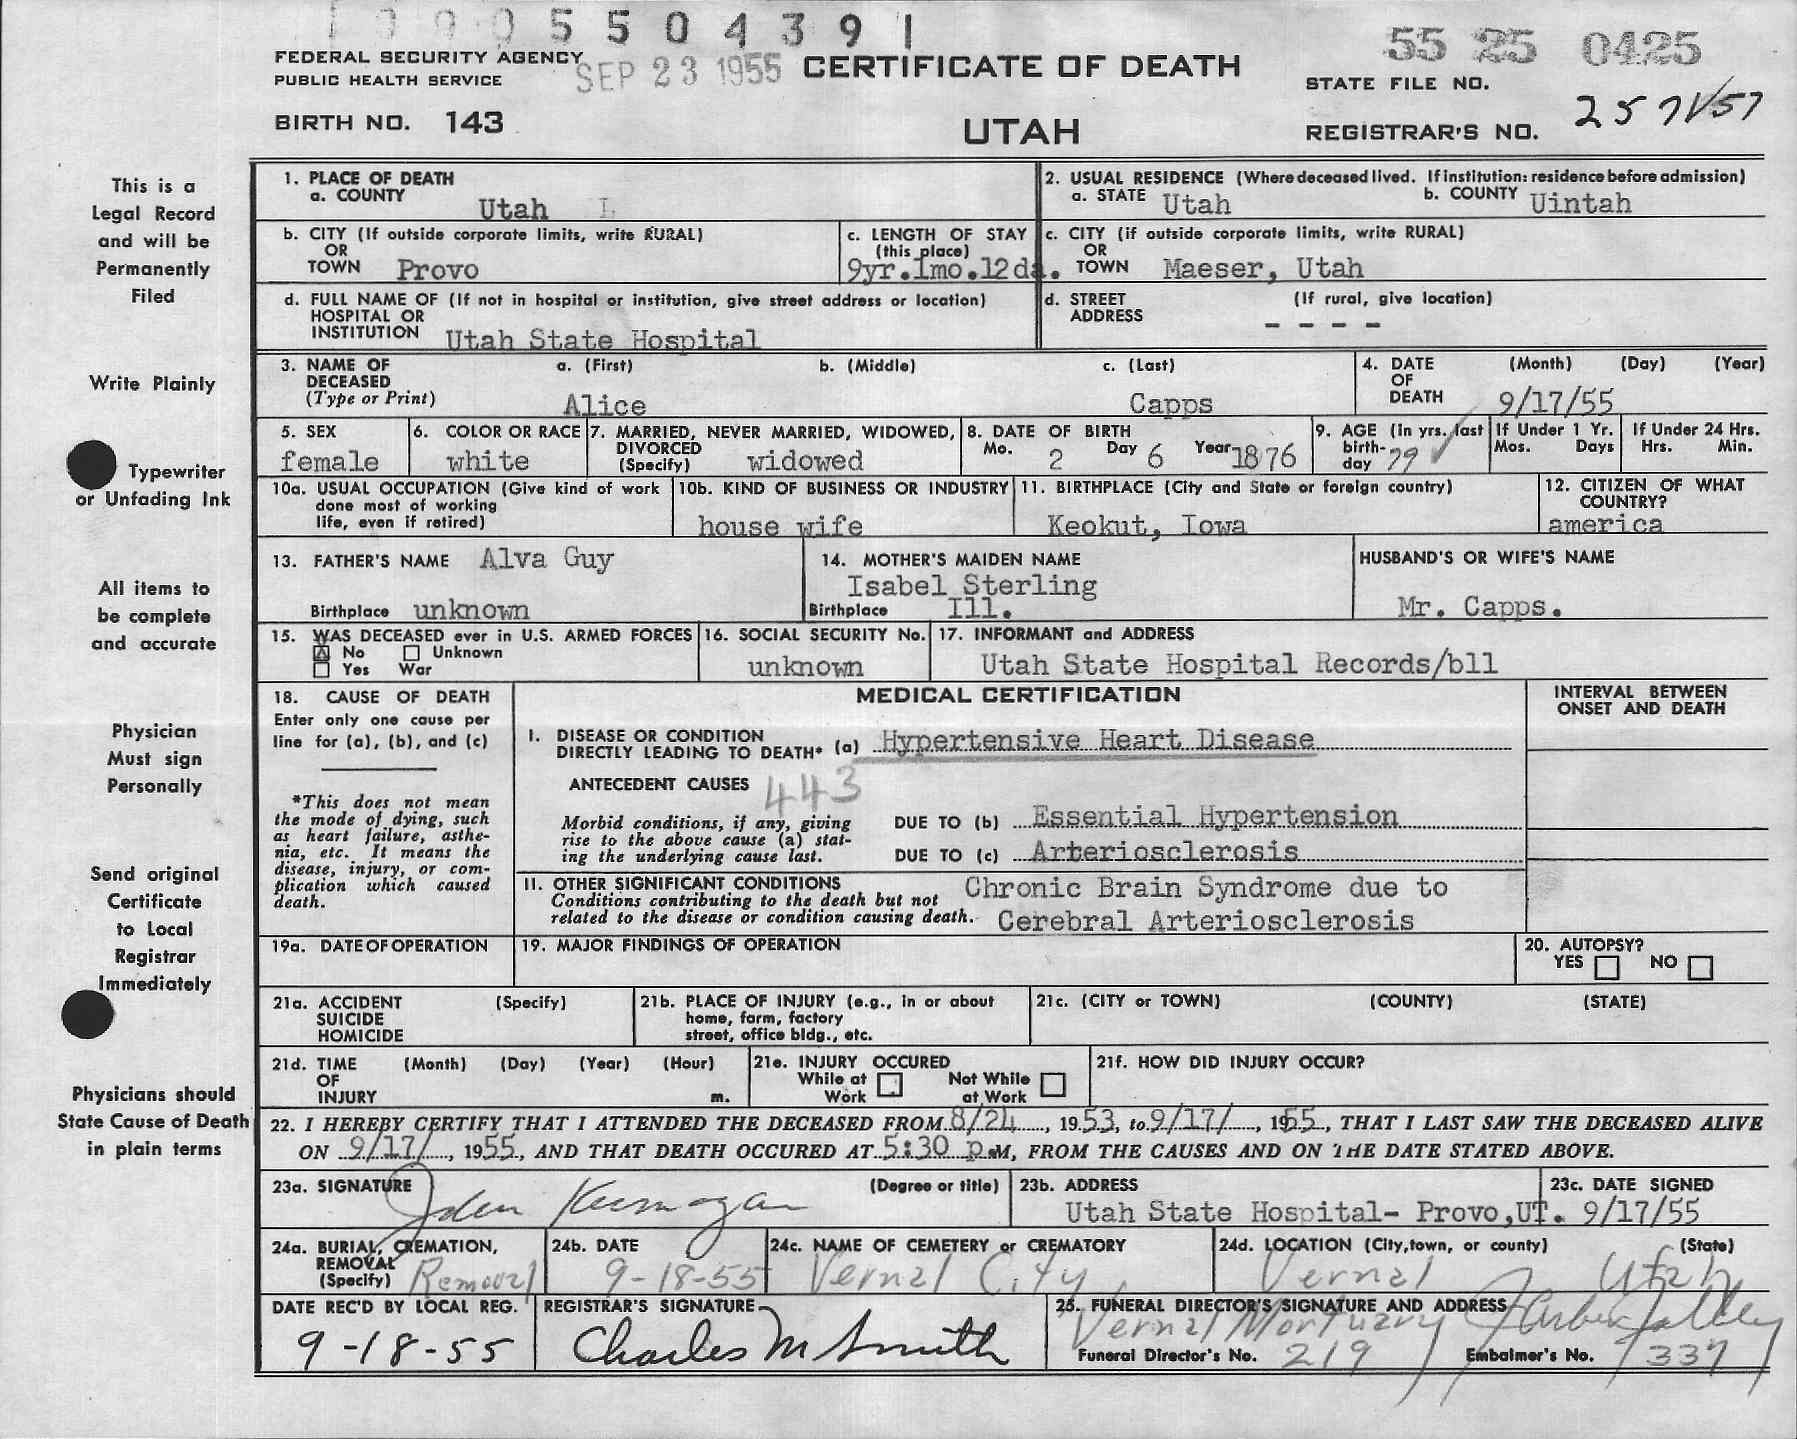 5 5 0 4 3 9 1
FEDERAL SECURITY AGENCY
PUBLIC HEALTH SERVICE
SEP 23 1955
CERTIFICATE OF DEATH
55 25 0425
STATE FILE NO.
BIRTH NO. 143
UTAH
REGISTRAR'S NO. 257
This is a
Legal Record
and will be
Permanently
Filed
Write Plainly
Typewriter
or Unfading Ink
All items to
be complete
and accurate
Physician
Must sign
Personally
Send original
Certificate
to Local
Registrar
Immediately
Physicians should
State Cause of Death
in plain terms
1. PLACE OF DEATH
a. COUNTY Utah
2. USUAL RESIDENCE (Where deceased lived. If institution: residence before admission)
a. STATE Utah b. COUNTY Uintah
b. CITY (If outside corporate limits, write RURAL)
OR
TOWN Provo
c. LENGTH OF STAY
(this place)
9yr.1mo.12da.
c. CITY (if outside corporate limits, write RURAL)
OR
TOWN Maeser, Utah
d. FULL NAME OF (If not in hospital or institution, give street address or location)
HOSPITAL OR
INSTITUTION Utah State Hospital
d. STREET (If rural, give location)
ADDRESS - - - -
3. NAME OF a. (First) b. (Middle) c. (Last)
DECEASED
(Type or Print) Alice Capps
4. DATE (Month) (Day) (Year)
OF
DEATH 9/17/55
5. SEX
female
6. COLOR OR RACE
white
7. MARRIED, NEVER MARRIED, WIDOWED,
DIVORCED
(Specify) widowed
8. DATE OF BIRTH
Mo. 2 Day 6 Year 1876
9. AGE (in yrs. last
birth-
day 79
If Under 1 Yr.
Mos. Days
If Under 24 Hrs.
Hrs. Min.
10a. USUAL OCCUPATION (Give kind of work
done most of working
life, even if retired)
10b. KIND OF BUSINESS OR INDUSTRY
house wife
11. BIRTHPLACE (City and State or foreign country)
Keokut, Iowa
12. CITIZEN OF WHAT
COUNTRY?
america
13. FATHER'S NAME Alva Guy
Birthplace unknown
14. MOTHER'S MAIDEN NAME
Isabel Sterling
Birthplace Ill.
HUSBAND'S OR WIFE'S NAME
Mr. Capps.
15. WAS DECEASED ever in U.S. ARMED FORCES
X No Unknown
Yes War
16. SOCIAL SECURITY No.
unknown
17. INFORMANT and ADDRESS
Utah State Hospital Records/bll
18. CAUSE OF DEATH
Enter only one cause per
line for (a), (b), and (c)
*This does not mean
the mode of dying, such
as heart failure, asthe-
nia, etc. It means the
disease, injury, or com-
plication which caused
death.
MEDICAL CERTIFICATION
INTERVAL BETWEEN
ONSET AND DEATH
I. DISEASE OR CONDITION
DIRECTLY LEADING TO DEATH* (a) Hypertensive Heart Disease
ANTECEDENT CAUSES 443
Morbid conditions, if any, giving
rise to the above cause (a) stat-
ing the underlying cause last.
DUE TO (b) Essential Hypertension
DUE TO (c) Arteriosclerosis
II. OTHER SIGNIFICANT CONDITIONS
Conditions contributing to the death but not
related to the disease or condition causing death.
Chronic Brain Syndrome due to
Cerebral Arteriosclerosis
19a. DATE OF OPERATION
19. MAJOR FINDINGS OF OPERATION
20. AUTOPSY?
YES NO
21a. ACCIDENT (Specify)
SUICIDE
HOMICIDE
21b. PLACE OF INJURY (e.g., in or about
home, farm, factory
street, office bldg., etc.
21c. (CITY or TOWN) (COUNTY) (STATE)
21d. TIME (Month) (Day) (Year) (Hour)
OF
INJURY m.
21e. INJURY OCCURED
While at Work Not While at Work
21f. HOW DID INJURY OCCUR?
22. I HEREBY CERTIFY THAT I ATTENDED THE DECEASED FROM 8/24, 1953, to 9/17/, 1955, THAT I LAST SAW THE DECEASED ALIVE
ON 9/17/, 1955, AND THAT DEATH OCCURED AT 5:30 p.M, FROM THE CAUSES AND ON THE DATE STATED ABOVE.
23a. SIGNATURE (Degree or title)
23b. ADDRESS
Utah State Hospital- Provo,UT.
23c. DATE SIGNED
9/17/55
24a. BURIAL, CREMATION,
REMOVAL
(Specify) Removal
24b. DATE
9-18-55
24c. NAME OF CEMETERY or CREMATORY
Vernal City
24d. LOCATION (City, town, or county) (State)
Vernal Utah
DATE REC'D BY LOCAL REG.
9-18-55
REGISTRAR'S SIGNATURE
Charles M Smith
25. FUNERAL DIRECTOR'S SIGNATURE AND ADDRESS
Vernal Mortuary
Funeral Director's No. 219 Embalmer's No. 337